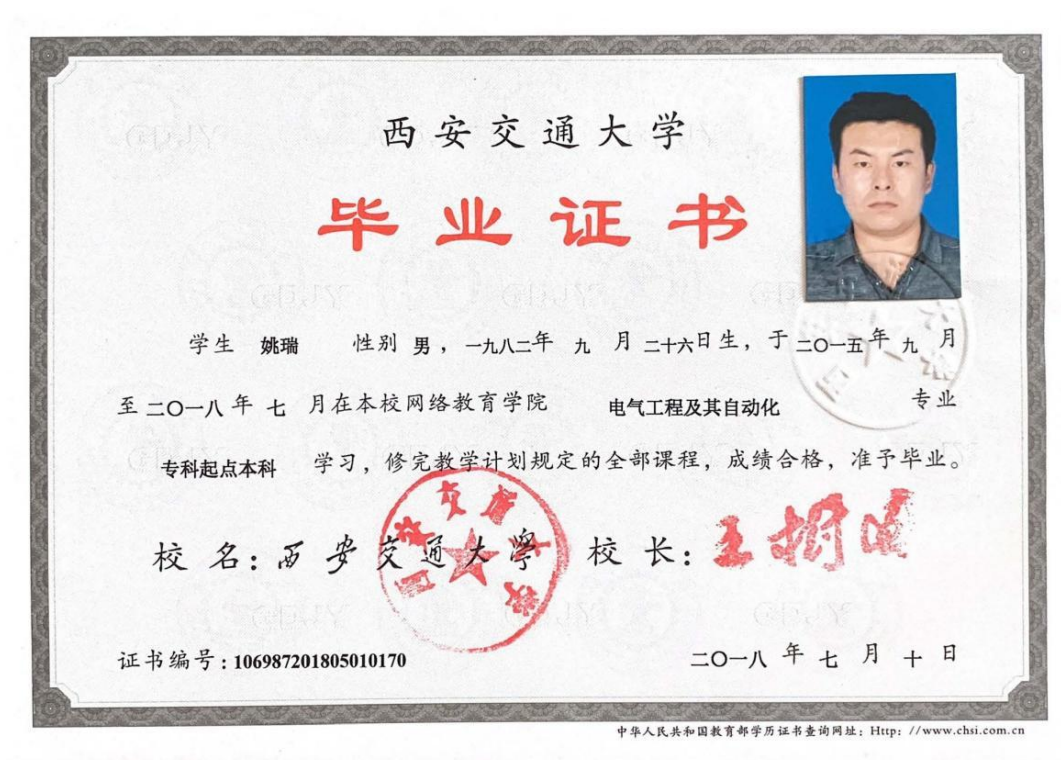 西安交通大学
毕业证书
学生 姚瑞 性别 男，一九八二年 九 月 二十六日生，于 二〇一五年 九 月
至 二〇一八 年 七 月在本校网络教育学院 电气工程及其自动化 专业
专科起点本科 学习，修完教学计划规定的全部课程，成绩合格，准予毕业。
校 名：西安交通大学 校 长：王树国
证书编号：106987201805010170
二〇一八 年 七 月 十 日
中华人民共和国教育部学历证书查询网址：Http：//www.chsi.com.cn